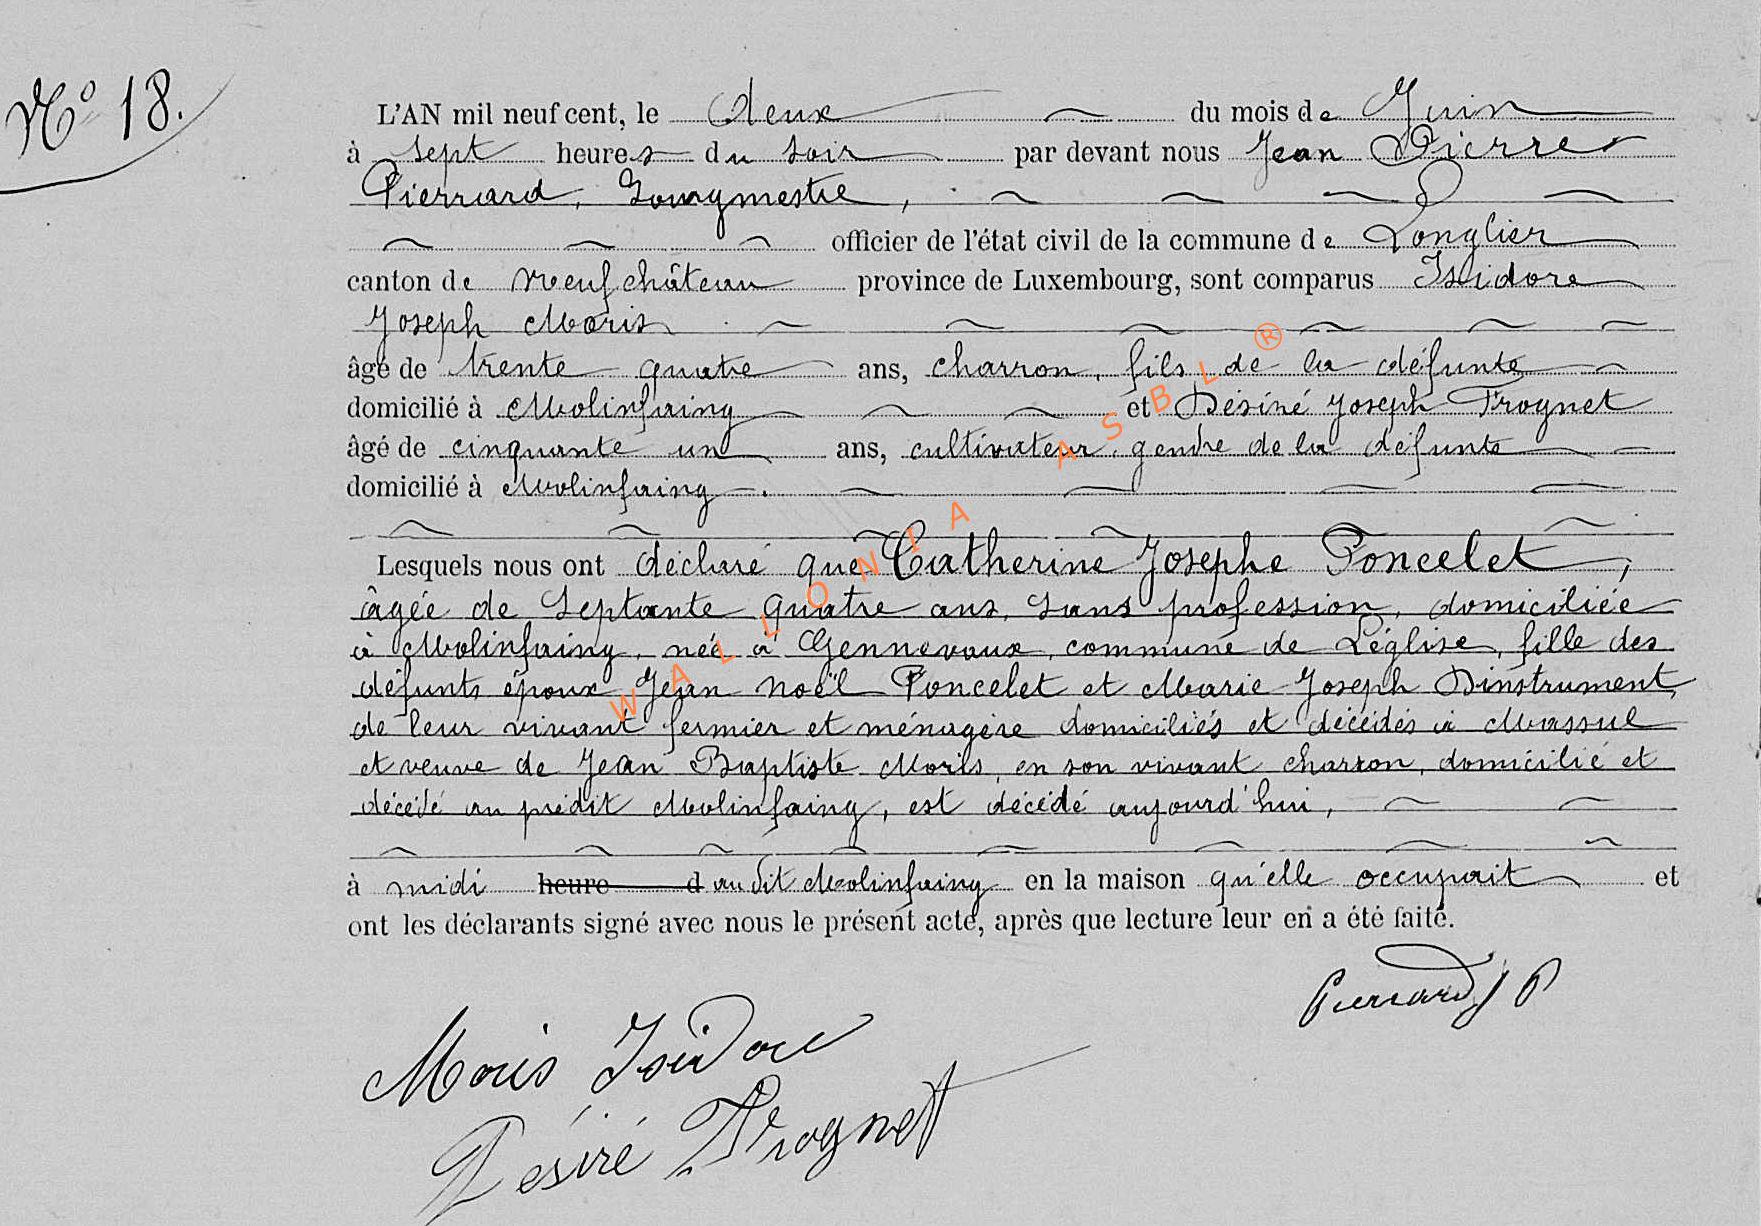 N° 18.
L'AN mil neuf cent, le deux du mois de Juin
à sept heures du soir par devant nous Jean Pierre
Pierrard, bourgmestre,
officier de l'état civil de la commune de Longlier
canton de Neufchâteau province de Luxembourg, sont comparus Isidore
Joseph Moris
âgé de trente quatre ans, charron, fils de la défunte
domicilié à Molinfaing et Désiré Joseph Trognet
âgé de cinquante un ans, cultivateur, gendre de la défunte
domicilié à Molinfaing.
Lesquels nous ont déclaré que Catherine Josephe Poncelet,
âgée de septante quatre ans, sans profession, domiciliée
à Molinfaing, née à Gennevaux, commune de Léglise, fille des
défunts époux Jean Noël Poncelet et Marie Joseph Dinstrument,
de leur vivant fermier et ménagère domiciliés et décédés à Massul
et veuve de Jean Baptiste Moris, en son vivant charron, domicilié et
décédé au prédit Molinfaing, est décédé aujourd'hui,
à midi heure d au dit Molinfaing en la maison qu'elle occupait et
ont les déclarants signé avec nous le présent acte, après que lecture leur en a été faite.
Pierrard J P
Moris Isidore
Désiré Trognet
WALLONIA ASBL ®